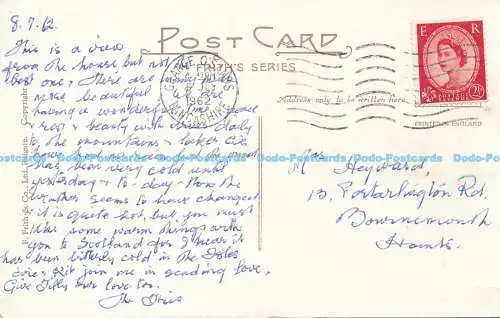 8.7.62
POST CARD
E R
This is a view
from the house but not the
FRITH'S SERIES
best one. There are
more beautiful. We are
1962
having a wonderful time
Address only to be written here.
rest & beauty with drives daily
PRINTED IN ENGLAND
to the mountains & lakes.
Dodo-Postcards Dodo-Postcards Dodo-Postcards Dodo-Postcards Dodo-Postcards
has been very cold until
yesterday & to-day. Now the
weather seems to have changed
it is quite hot, but you must
take some warm things with
you to Scotland for I hear it
has been bitterly cold in the
join me in sending love.
Give Tilly our love too.
Mrs Heyward,
13, Portarlington Rd,
Bournemouth
Hants.
F. Frith & Co., Ltd., Reigate. Copyright